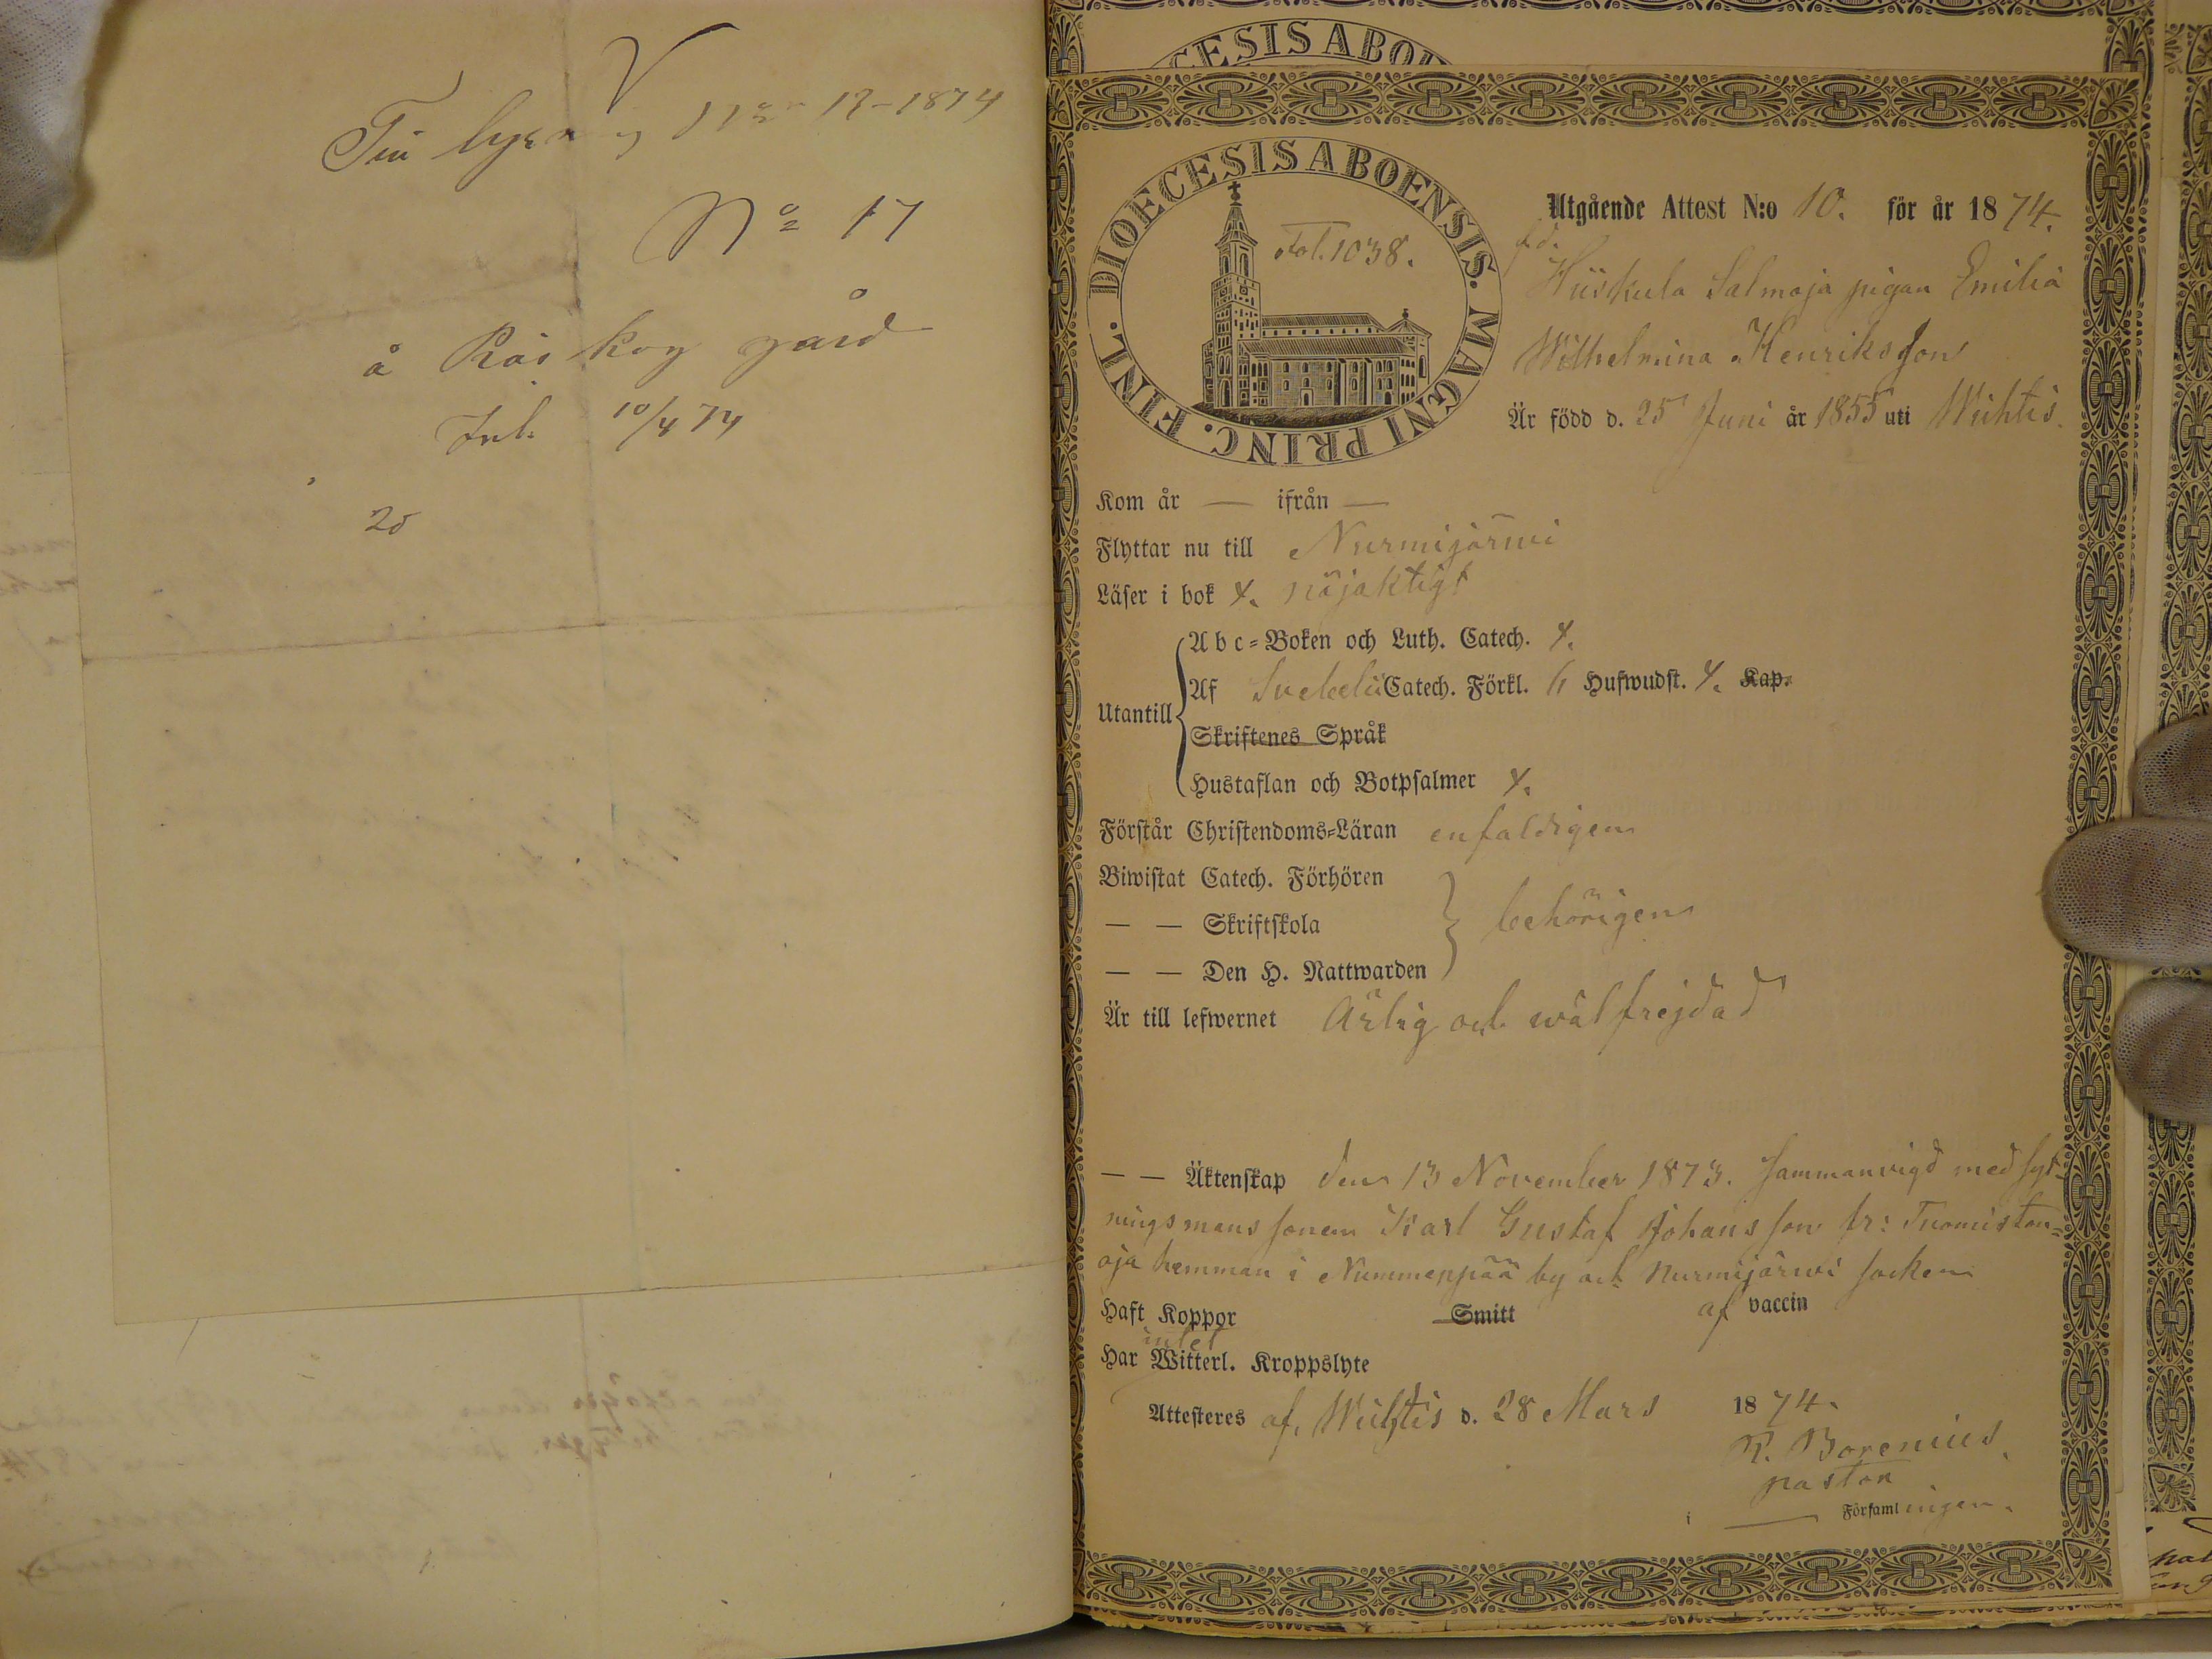 V
12–1874
No 17
å Räskog gård
Inl. 10/4 74
20
CESIS ABO
DIOECESIS ABOENSIS. MAGNI PRINC. FINL.
Fol. 1038.
Utgående Attest N:o 10. för år 1874.
f.d.
Hiiskula Salmoja pigan Emilia
Wilhelmina Henriksson
Är född d. 25 Juni år 1855 uti Wichtis.
Kom år — ifrån —
Flyttar nu till Nurmijärwi
Läser i bok x. nöjaktigt
Utantill
Abc-Boken och Luth. Catech. x.
Af Svebelii Catech. Förkl. 6 Hufwudst. x. Kap.
Skriftenes Språk
Hustaflan och Botpsalmer x.
Förstår Christendoms-Läran enfaldigen
Biwistat Catech. Förhören
— — Skriftskola behörigen
— — Den H. Nattwarden
Är till lefwernet Ärlig och wälfrejdad
— — Äktenskap den 13 November 1873. Sammanvigd med syt-
ningsmans sonen Karl Gustaf Johansson fr: Tuomiston=
oja hemman i Nummenpää by och Nurmijärwi socken
Haft Koppor Smitt af vaccin
intet
Har Witterl. Kroppslyte
Attesteres af, Wichtis d. 28 Mars 1874.
R. Borenius
pastor
i — Församlingen.